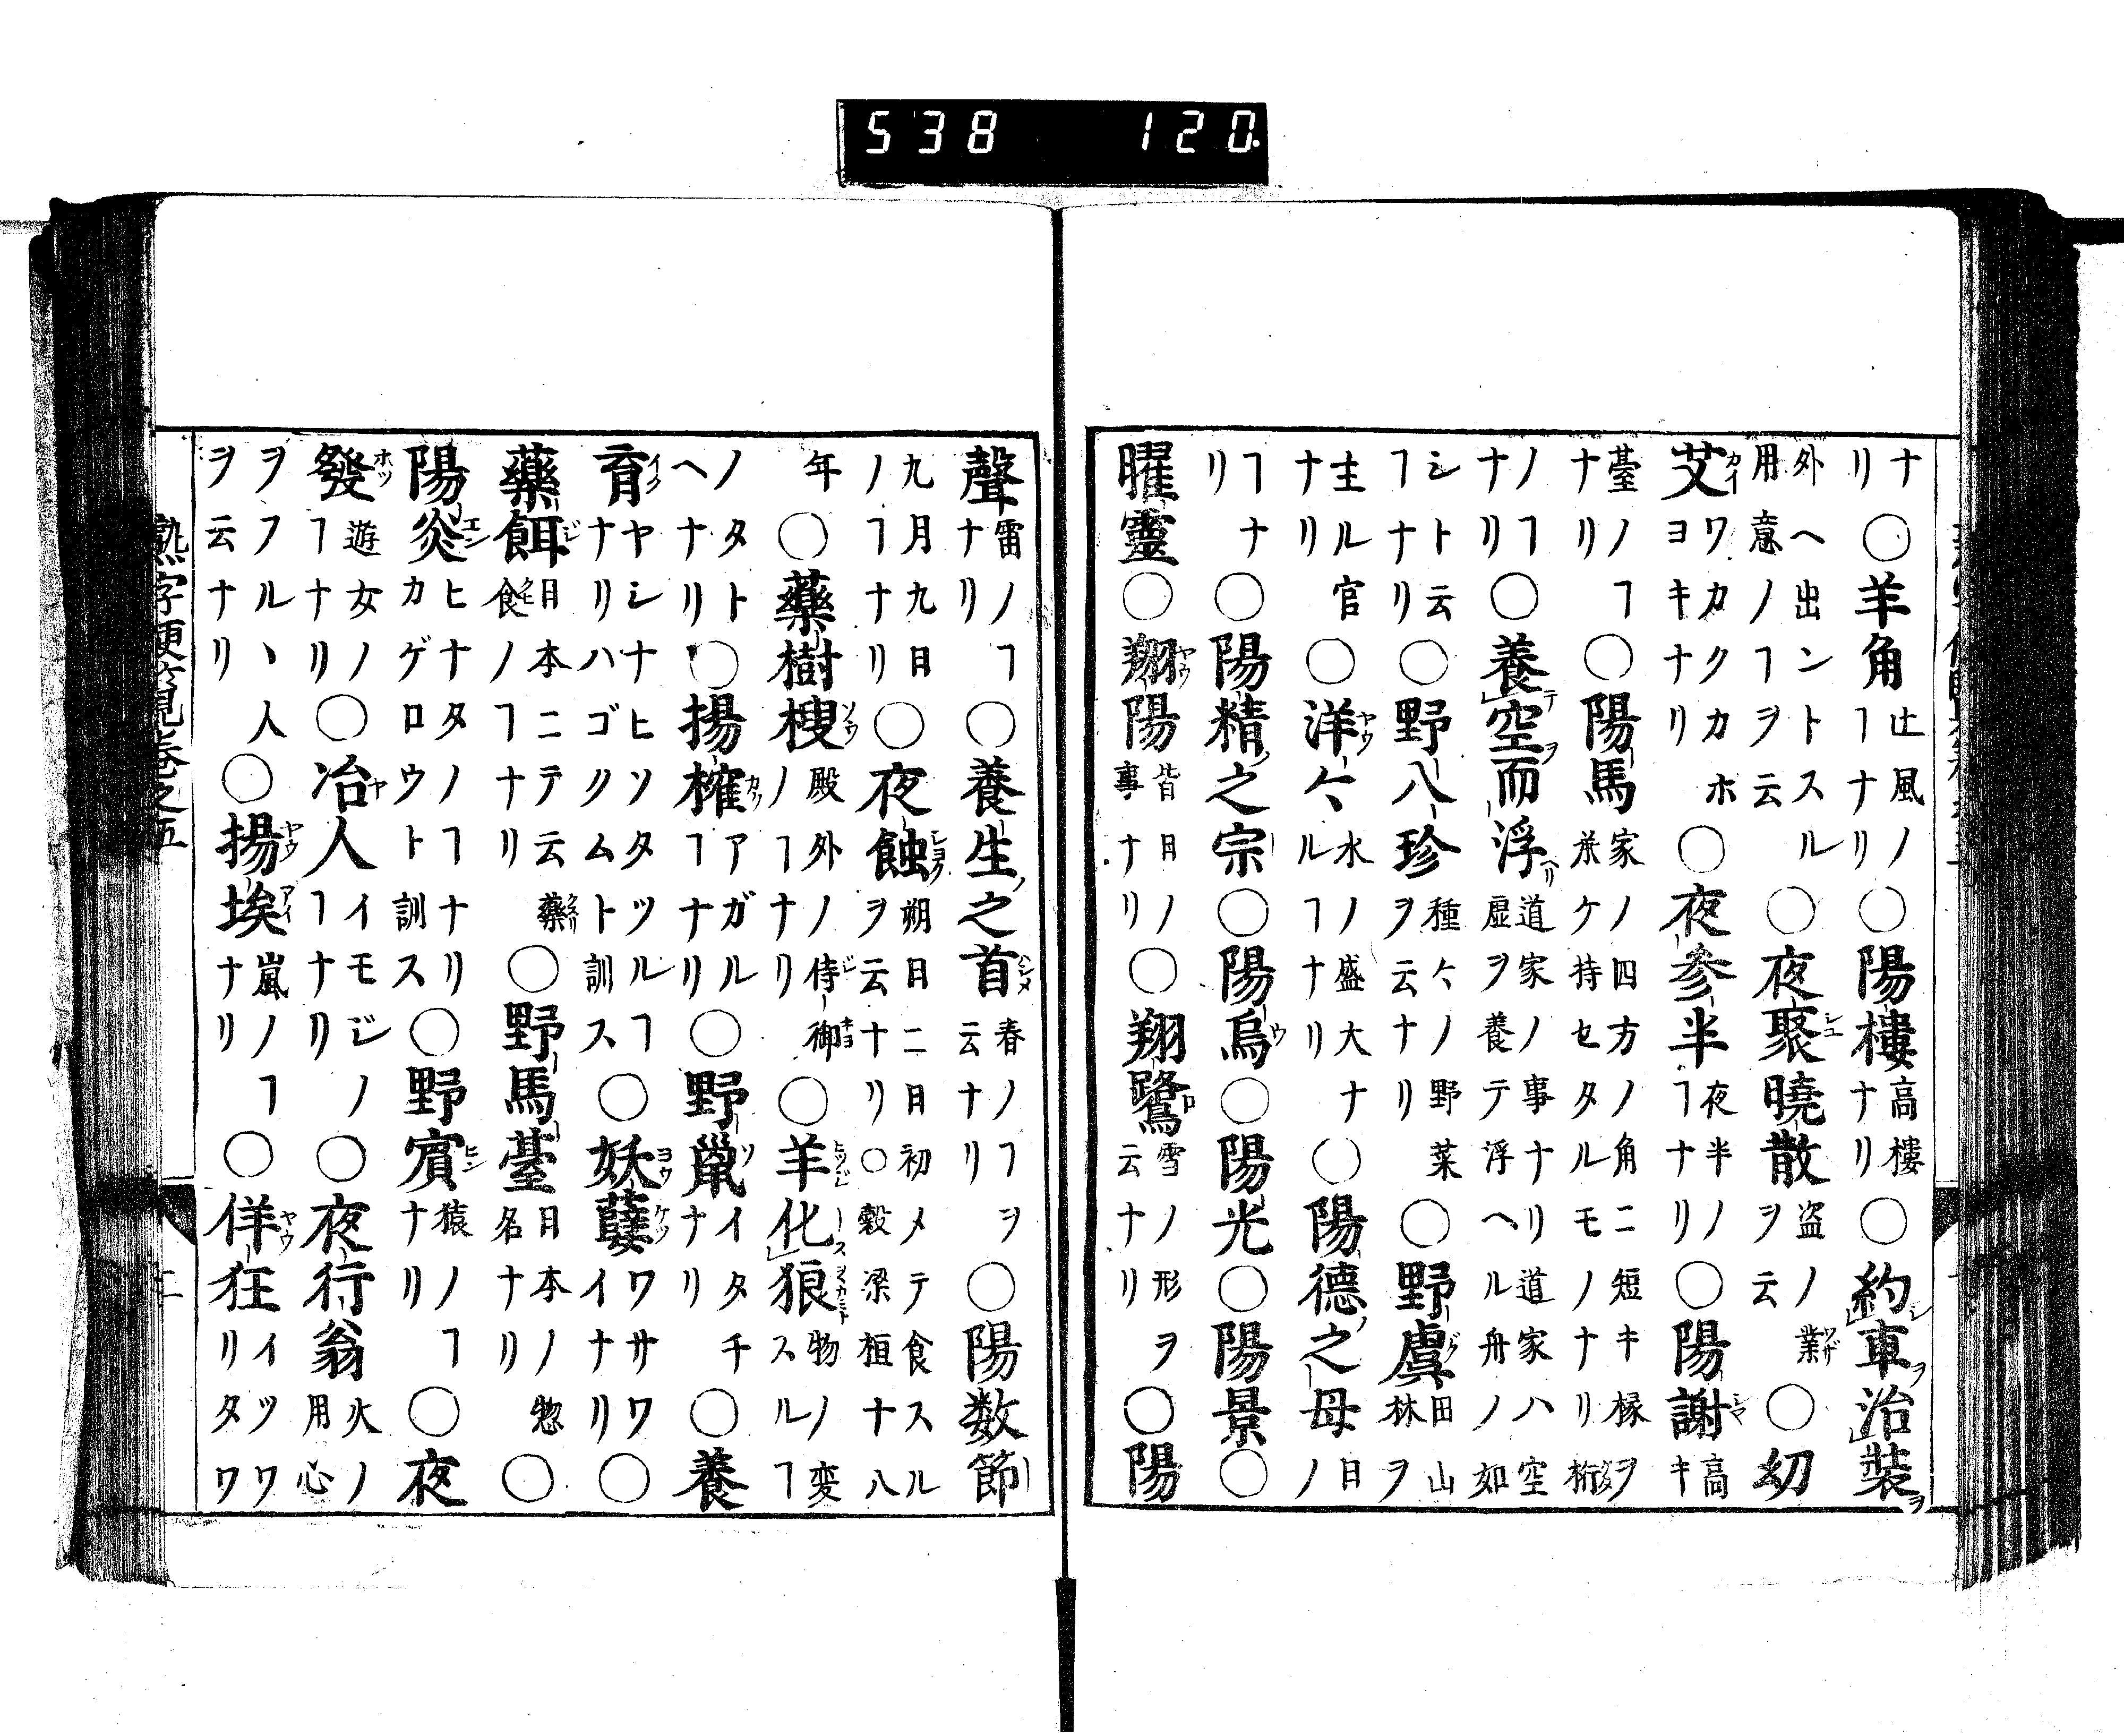 ナリ○羊角辻風ノヿナリ○陽樓高樓ナリ○約車治裝
外ヘ出ントスル用意ノヿヲ云○夜聚曉散盗ノ業ヲ云○幼
艾ワカクカホヨキナリ○夜參半夜半ノヿナリ○陽謝高キ
臺ノヿナリ○陽馬家ノ四方ノ角ニ短キ椽ヲ桁ケ持セタルモノナリ
ノヿナリ○養空而浮道家ノ事ナリ道家ハ空虚ヲ養テ浮ヘル舟ノ如
シト云ヿナリ○野八珍種々ノ野菜ヲ云ナリ○野虞田山林ヲ
主ル官ナリ○洋々水ノ盛大ナルヿナリ○陽德之母日ノ
ヿナリ○陽精之宗○陽烏○陽光○陽景○
曜靈○翔陽皆日ノ事ナリ○翔鷺雪ノ形ヲ云ナリ○陽
聲雷ノヿナリ○養生之首春ノヿヲ云ナリ○陽数節
九月九日ノヿナリ○夜蝕朔日二日初メテ食スルヲ云ナリ○穀梁桓十八
年○藥樹㮴殿外ノ侍御ノヿナリ○羊化狼物ノ変スルヿ
ノタトヘナリ○揚榷アガルヿナリ○野鼡イタチナリ○養
育ヤシナヒソタツルヿナリハゴクムト訓ス○妖孽ワサワイナリ○
藥餌日本ニテ云藥食ノヿナリ○野馬臺日本ノ惣名ナリ○
陽炎ヒナタノヿナリカゲロウト訓ス○野賓猿ノヿナリ○夜
發遊女ノヿナリ○冶人イモジノヿナリ○夜行翁火ノ用心
ヲフルヽ人ヲ云ナリ○揚埃嵐ノヿナリ○佯狂イツワリタワ
熟字便覧巻之五 二
538 120